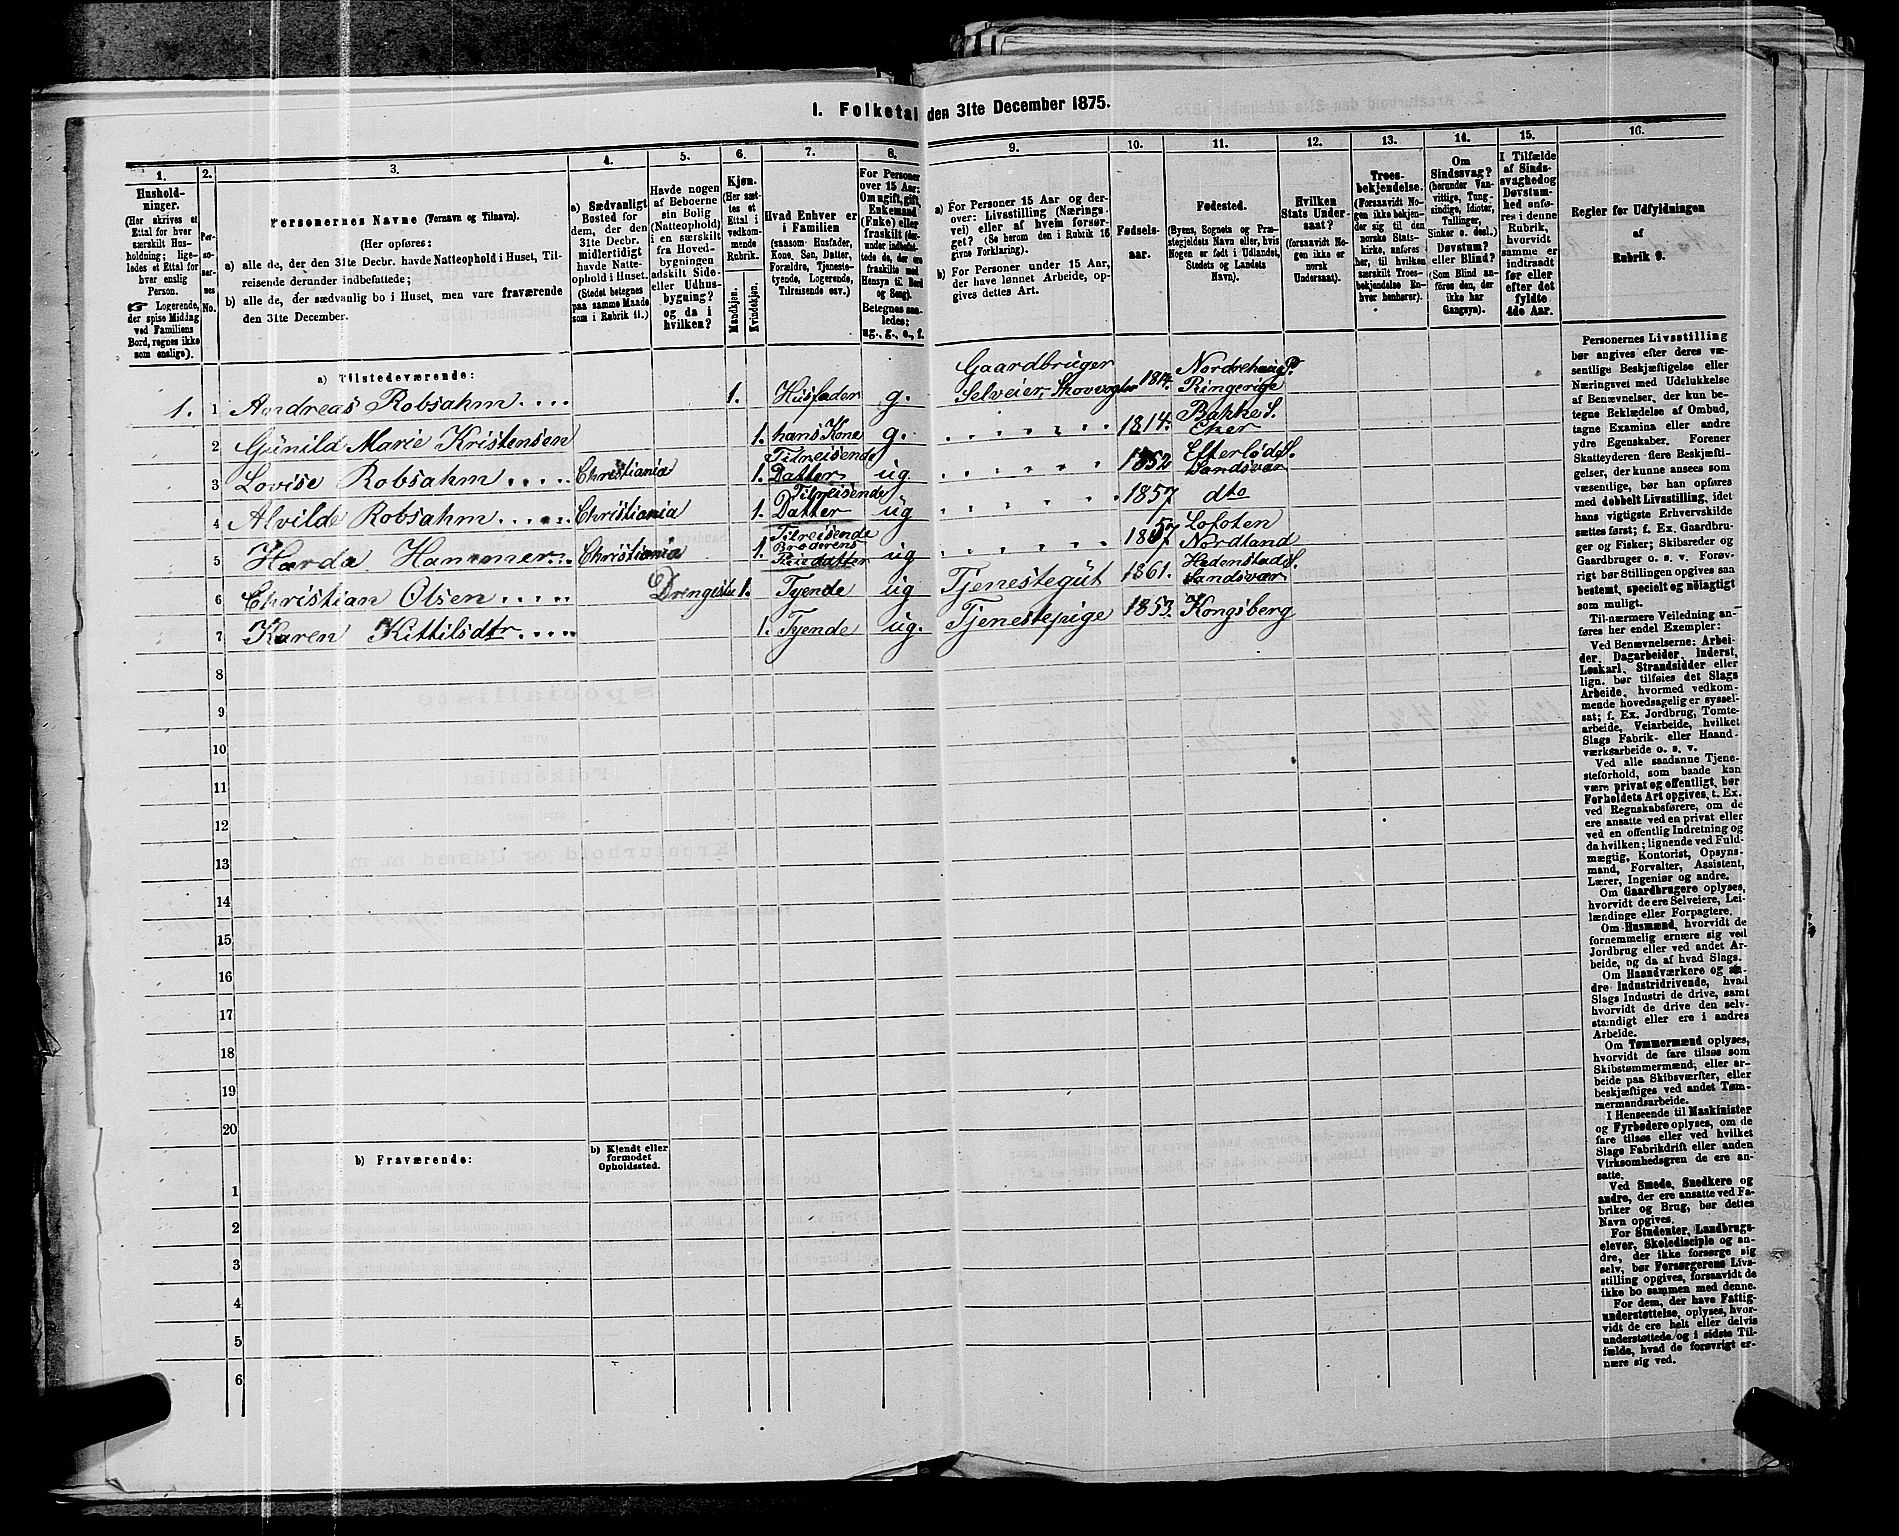 1. Folketal den 31te December 1875.
1. 2. 3. 4. 5. 6. 7. 8. 9. 10. 11. 12. 13. 14. 15. 16.
Hushold-
ninger.
(Her skrives et
Ettal for hver
særskilt Hus-
holdning; lige-
ledes et Ettal for
hver enslig
Person.
☞ Logerende,
der spise Middag
ved Familiens
Bord, regnes ikke
som enslige).
Per-
so-
ner-
nes
No.
Personernes Navne (Fornavn og Tilnavn).
(Her opføres:
a) alle de, der den 31te Decbr. havde Natteophold i Huset, Til-
reisende derunder indbefattede;
b) alle de, der sædvanlig bo i Huset, men vare fraværende
den 31te December.
a) Sædvanligt
Bosted for
dem, der den
31te Decbr.
midlertidigt
havde Natte-
ophold i Huset.
(Stedet betegnes
paa samme Maade
som i Rubrik 11.)
Havde nogen
af Beboerne
sin Bolig
(Natteophold)
i en særskilt
fra Hoved-
bygningen
adskilt Side-
eller Udhus-
bygning?
og da i
hvilken?
Kjøn.
(Her sæt-
tes et
Ettal i
vedkom-
mende
Rubrik.
Mandkjøn.
Kvindekjøn.
Hvad Enhver er
i Familien
(saasom Husfader,
Kone, Søn, Datter,
Forældre, Tjeneste-
tyende, Logerende,
Tilreisende osv.)
For Personer
over 15 Aar:
Om ugift, gift,
Enkemand
(Enke) eller
fraskilt (der-
under indbefat-
tede de, der ere
fraskilte med
Hensyn til Bord
og Seng).
Betegnes saa-
ledes:
ug., g., e., f.
a) For Personer 15 Aar og der-
over: Livsstilling (Nærings-
vei) eller af hvem forsør-
get? (Se herom den i Rubrik 16
givne Forklaring).
b) For Personer under 15 Aar,
der have lønnet Arbeide, op-
gives dettes Art.
Fødsels-
aar.
Fødested.
(Byens, Sognets og Præ-
stegjeldets Navn eller, hvis
Nogen er født i Udlandet,
Stedets og Landets
Navn).
Hvilken
Stats Under-
saat?
(forsaavidt No-
gen ikke er
norsk
Undersaat).
Troes-
bekjendelse.
(Forsaavidt No-
gen ikke bekjen-
der sig til den
norske Stats-
kirke, an-
føres her, til
hvilket særskilt Troes-
bekjendelse En-
hver henhører).
Om
Sindssvag?
(herunder Van-
vittige, Tung-
sindige, Idioter,
Tullinger,
Sinker o. desl.)
Døvstum?
eller Blind?
(Som Blind an-
føres den, der
ikke har
Gangsyn).
I Tilfælde
af Sinds-
svaghed og
Døvstum-
hed anfø-
res i denne
Rubrik,
hvorvidt
samme er
indtraadt
før eller
efter det
fyldte
4de Aar.
Regler for Udfyldningen
af
Rubrik 9.
a) Tilstedeværende:
1. 1 Andreas Robsahm .... 1. Husfader g. Gaardbruger Selveier, Skovvogter 1814. Nordrehaug P. Ringerige
2 Gunild Marie Kristensen 1. hans Kone g. " " " " " " 1814. Bakke S. Eker
3 Lovise Robsahm ..... Christiania 1. Tilreisende Datter ug " " " " " " 1852 Efterløds S. Sandsvær
4 Alvilde Robsahm ..... Christiania 1. Tilreisende Datter ug " " " " " " 1857 dto
5 Harda Hammer ... Christiania 1. Tilreisende Broderens Pleiedatter ug " " " " " " 1857 Lofoten Nordland
6 Christian Olsen .... Drengestue 1. Tyende ug Tjenestegut 1861. Hedenstad S. Sandsvær
7 Karen Kittilsdtr .... 1. Tyende ug. Tjenestepige 1853. Kongsberg
8
9
10
11
12
13
14
15
16
17
18
19
20
b) Fraværende:
b) Kjendt eller
formodet
Opholdssted.
1
2
3
4
5
6
Personernes Livsstilling
bør angives efter deres væ-
sentlige Beskjæftigelse eller
Næringsvei med Udelukkelse
af Benævnelser, der kun be-
tegne Beklædelse af Ombud,
tagne Examina eller andre
ydre Egenskaber. Forener
Skatteyderen flere Beskjæfti-
gelser, der kunne ansees som
væsentlige, bør han opføres
med dobbelt Livsstilling, idet
hans vigtigste Erhvervskilde
sættes først; f. Ex. Gaardbru-
ger og Fisker; Skibsreder og
Gaardbruger o. s. v. Forøv-
rigt bør Stillingen opgives saa
bestemt, specielt og nøiagtigt
som muligt.
Til nærmere Veiledning an-
føres her endel Exempler:
Ved Benævnelserne: Arbei-
der, Dagarbeider, Inderst,
Løskarl, Strandsidder eller
lign. bør tilføies det Slags
Arbeide, hvormed vedkom-
mende hovedsagelig er syssel-
sat; f. Ex. Jordbrug, Tomte-
arbeide, Veiarbeide, hvilket
Slags Fabrik- eller Haand-
værksarbeide o. s. v.
Ved alle saadanne Tjene-
steforhold, som baade kan
være privat og offentligt, bør
Forholdets Art opgives, t. Ex.
ved Regnskabsførere, om de
ere ansatte ved en privat eller
ved en offentlig Indretning og
da hvilken; lignende ved Fuld-
mægtig, Kontorist, Opsyns-
mand, Forvalter, Assistent,
Lærer, Ingeniør og andre.
Om Gaardbrugere oplyses,
hvorvidt de ere Selveiere, Lei-
lændinge eller Forpagtere.
Om Husmænd, hvorvidt de
fornemmelig ernære sig ved
Jordbrug eller ved andet Ar-
beide, og da af hvad Slags.
Om Haandværkere og an-
dre Industridrivende, hvad
Slags Industri de drive, samt
hvorvidt de drive den selv-
stændigt eller ere i andres
Arbeide.
Om Tømmermænd oplyses,
hvorvidt de fare tilsøs som
Skibstømmermænd, eller ar-
beide paa Skibsværfter, eller
beskjæftiges ved andet Tøm-
mermandsarbeide.
I Henseende til Maskinister
og Fyrbødere oplyses, om de
fare tilsøs eller ved hvilket
Slags Fabrikdrift eller anden
Virksomhedsgren de ere an-
satte.
Ved Smede, Snedkere og
andre, der ere ansatte ved Fa-
briker og Brug, bør dettes
Navn opgives.
For Studenter, Landbrugs-
elever, Skoledisciple og an-
dre, der ikke forsørge sig
selv, bør Forsørgerens Livs-
stilling opgives, forsaavidt de
ikke bo sammen med denne.
For dem, der have Fattig-
understøttelse, oplyses, hvor-
vidt de ere helt eller delvis
understøttede og i sidste Til-
fælde, hvad de forøvrigt er-
nære sig ved.